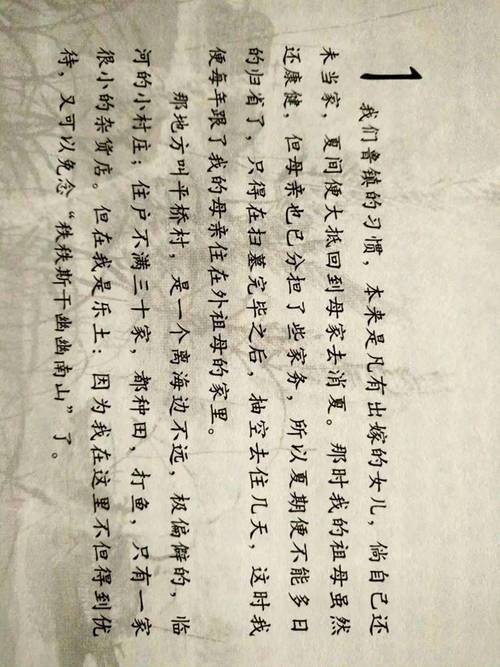 1
我们鲁镇的习惯，本来是凡有出嫁的女儿，倘自己还
未当家，夏间便大抵回到母家去消夏。那时我的祖母虽然
还康健，但母亲也已分担了些家务，所以夏期便不能多日
的归省了，只得在扫墓完毕之后，抽空去住几天，这时我
便每年跟了我的母亲住在外祖母的家里。
那地方叫平桥村，是一个离海边不远，极偏僻的，临
河的小村庄；住户不满三十家，都种田，打鱼，只有一家
很小的杂货店。但在我是乐土：因为我在这里不但得到优
待，又可以免念“秩秩斯干幽幽南山”了。